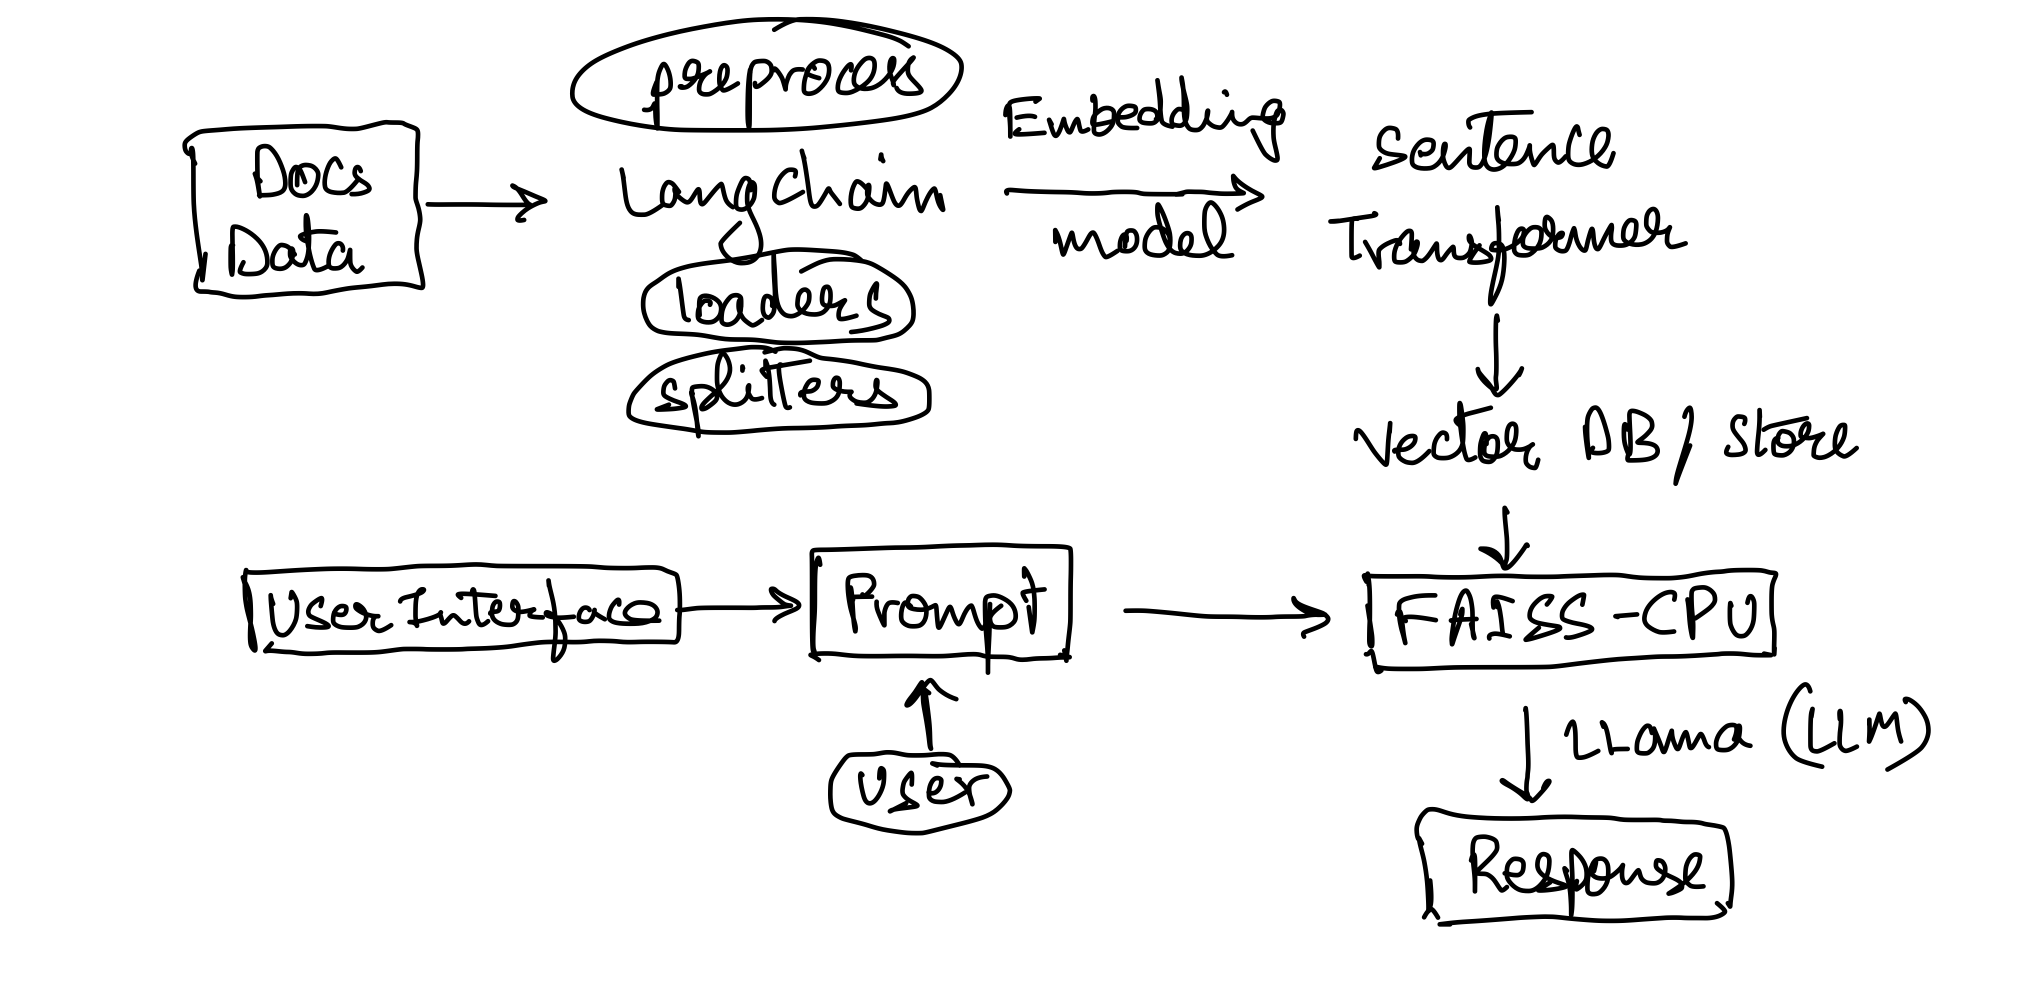 preprocess
Docs
Data
Langchain
loaders
splitters
Embedding
model
Sentence
Transformer
Vector DB/Store
User Interface
Prompt
User
FAISS-CPU
LLama (LLM)
Response